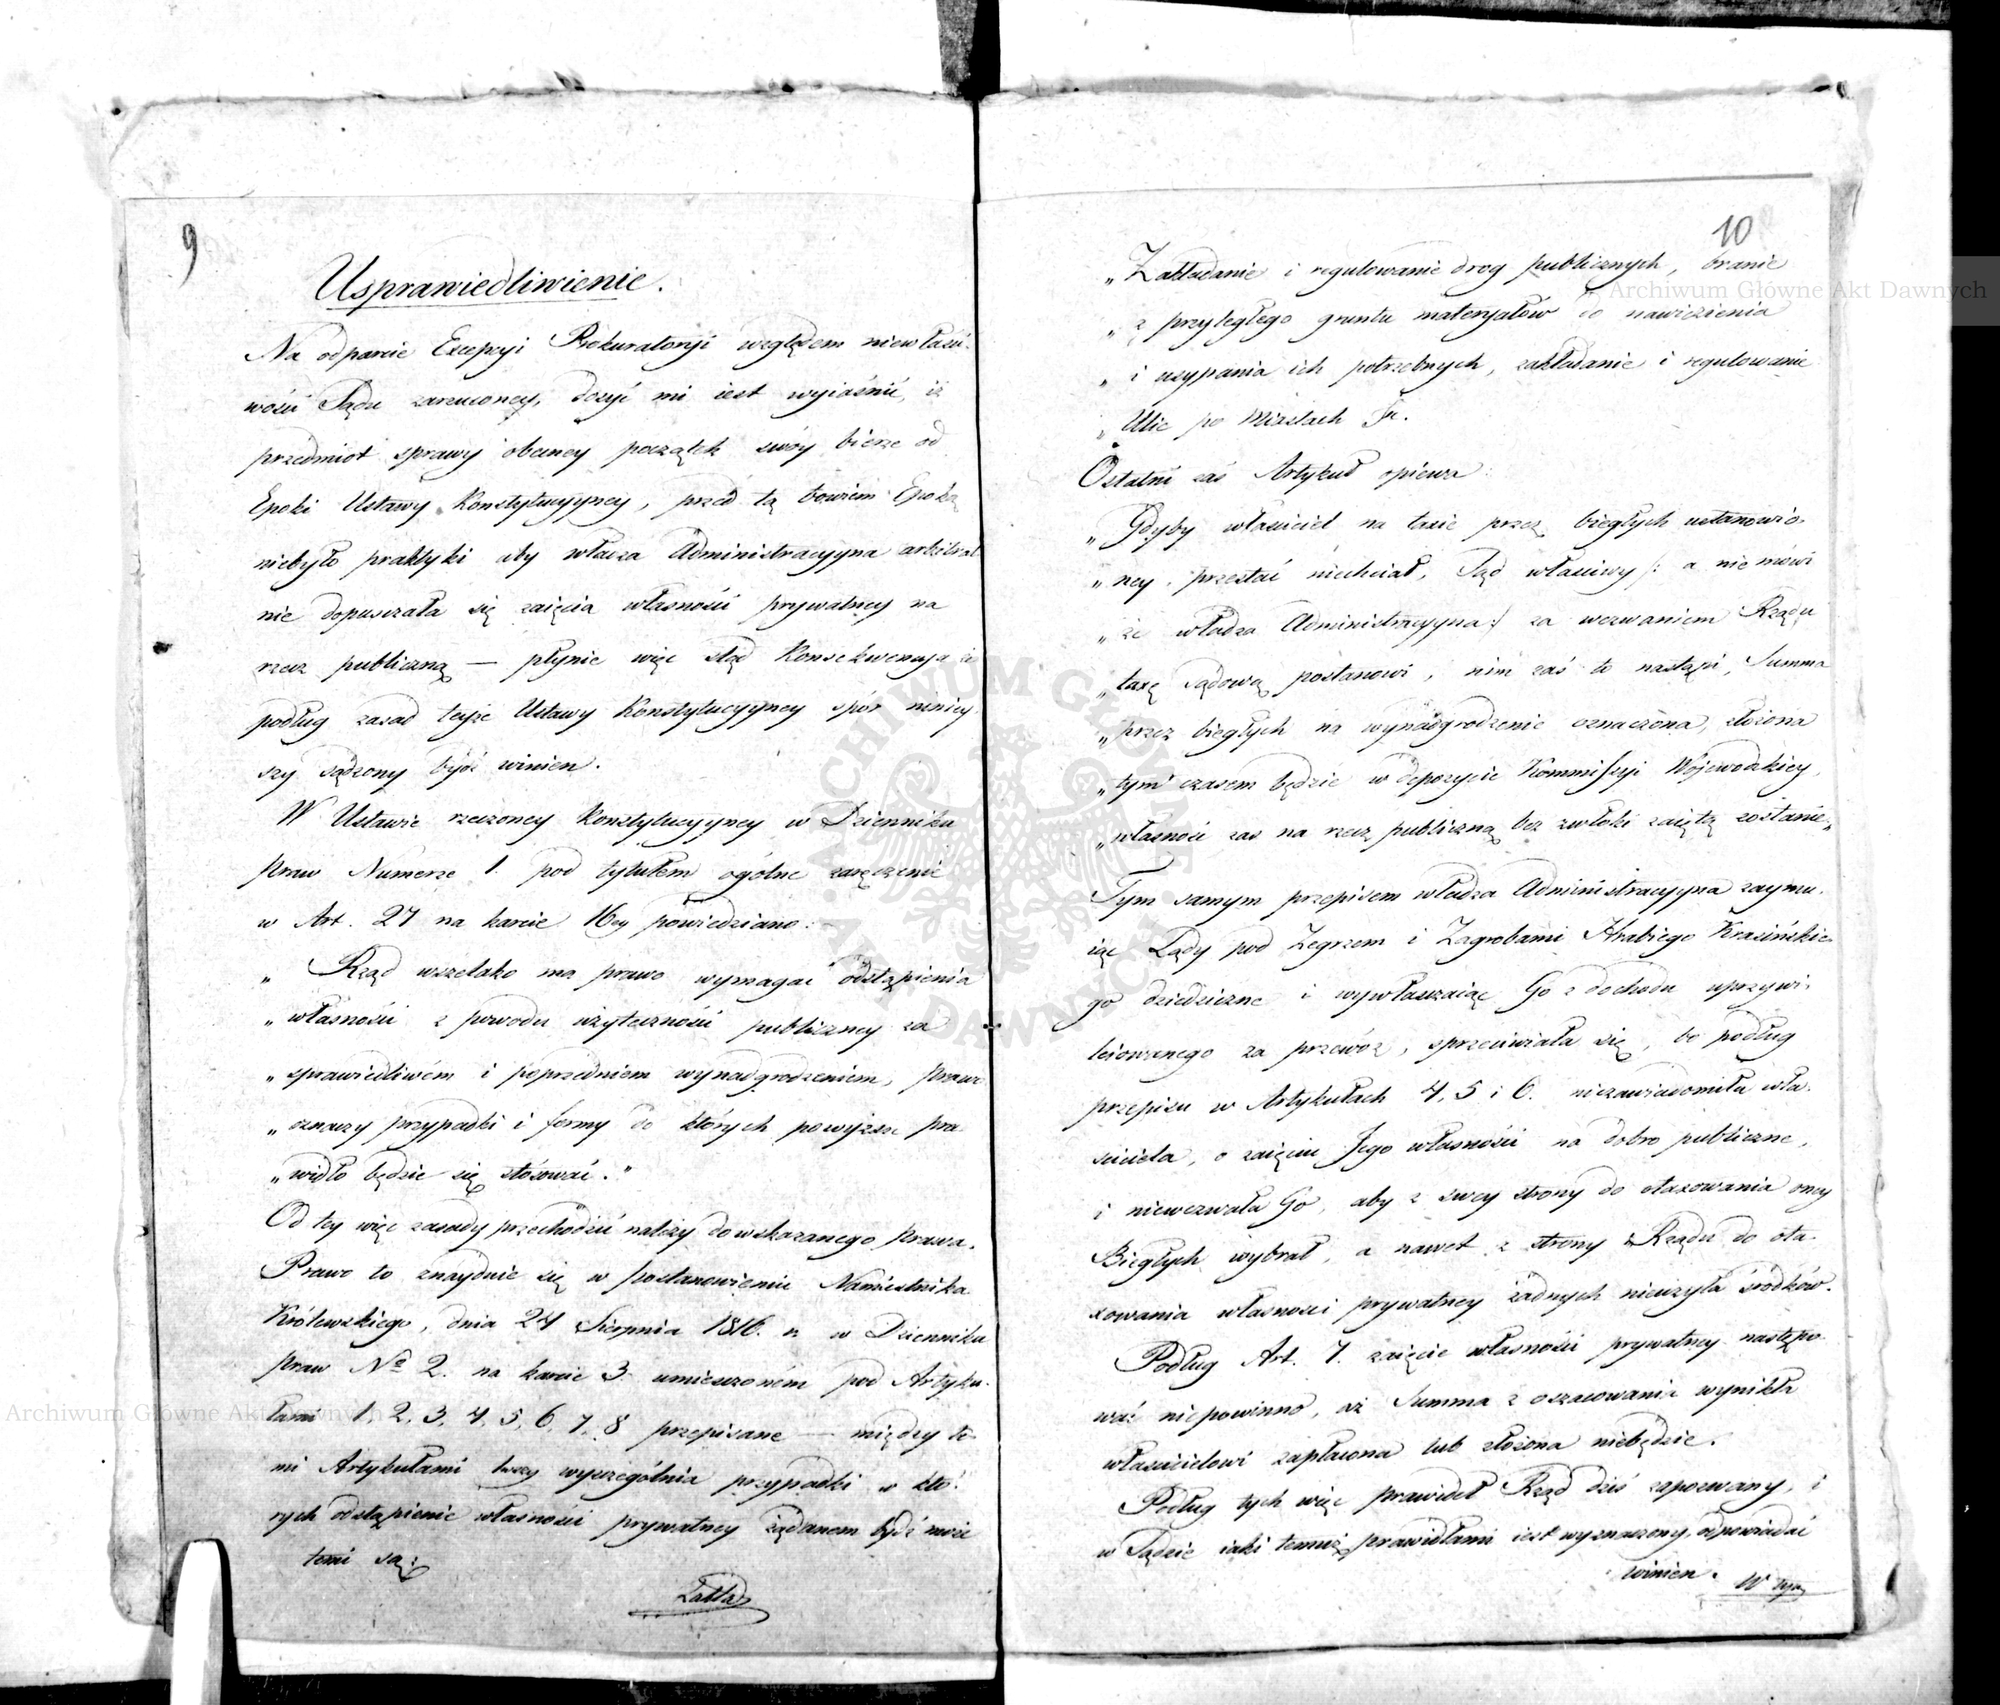 9
Usprawiedliwienie.
Na odparcie Excepcyi Prokuratoryi względem niewłaści-
wości Sądu zarzuconey, dosyć mi iest wyiaśnić, iż
przedmiot sprawy obecney początek swóy bierze od
Epoki Ustawy Konstytucyyney, przed tą bowiem Epoką
niebyło praktyki aby władza Administracyyna arbitral
nie dopuszczała się zaięcia własności prywatney na
rzecz publiczną — płynie więc stąd Konsekwencya że
podług zasad teyże Ustawy Konstytucyyney spór niniey
szy sądzony bydź winien.
W Ustawie rzeczoney Konstytucyyney w Dzienniku
Praw Numerze 1. pod tytułem ogólne zaręczenie
w Art. 27 na karcie 16ey powiedziano: —
„ Rząd wszelako ma prawo wymagać odstąpienia
„ własności z powodu użyteczności publiczney za
„ sprawiedliwém i poprzedniem wynadgrodzeniem, Prawo
„ oznaczy przypadki i formy do których powyższe pra-
„ widło będzie się stósować."
Od tey więc zasady przechodzić należy do wskazanego Prawa.
Prawo to znayduie się w postanowieniu Namiestnika
Królewskiego, dnia 24 Sierpnia 1816. r. w Dzienniku
Praw No 2. na karcie 3 umieszczoném pod Artyku-
łami 1, 2, 3, 4, 5, 6, 7, 8 przepisane — między te-
mi Artykułami wyszczególnia przypadki w któ-
rych odstąpienie własności prywatney żądanem bydź może
temi są:
Zakła
10
„ Zakładanie i regulowanie drog publicznych, branie
„ z przyległego gruntu materyałów do nawiezienia
„ i usypania ich potrzebnych, zakładanie i regulowanie
„ Ulic po Miastach
Ostatni zaś Artykuł opiewa:
„ Gdyby właściciel na taxie przez biegłych ustanowio-
„ ney, przestać niechciał, Sąd właściwy /: a nie mówi
„ że władza Administracyyna :/ za wezwaniem Rządu
„ taxę sądową postanowi, nim zaś to nastąpi, Summa
„ przez biegłych na wynadgrodzenie oznaczona, złożona
„ tym czasem będzie w depozycie Kommissyi Woiewodzkiey,
„ własność zaś na rzecz publiczną bez zwłoki zaiętą zostanie„
Tym samym przepisem władza Administracyyna zaymu-
iąc Lądy pod Zegrzem i Zagrobami Hrabiego Krasińskie-
go dziedziczne i wywłaszczaiąc Go z dochodu uprzywi-
leiowanego za przewóz, sprzeciwiała się, bo podług
przepisu w Artykułach 4, 5 i 6. niezawiadomiła wła-
ściciela, o zaięciu Jego własności na dobro publiczne,
i niewezwała Go, aby z swey strony do otaxowania oney
Biegłych wybrał, a nawet z strony Rządu do ota-
xowania własności prywatney żadnych nieużyła środków.
Podług Art. 7. zaięcie własności prywatney następo-
wać niepowinno, aż Summa z oszacowania wynikła
właścicielowi zapłacona lub złożona niebędzie.
Podług tych więc prawideł Rząd dziś zapozwany, i
w Sądzie iaki temiż prawidłami iest wyznaczony, odpowiadać
winien.
W tym